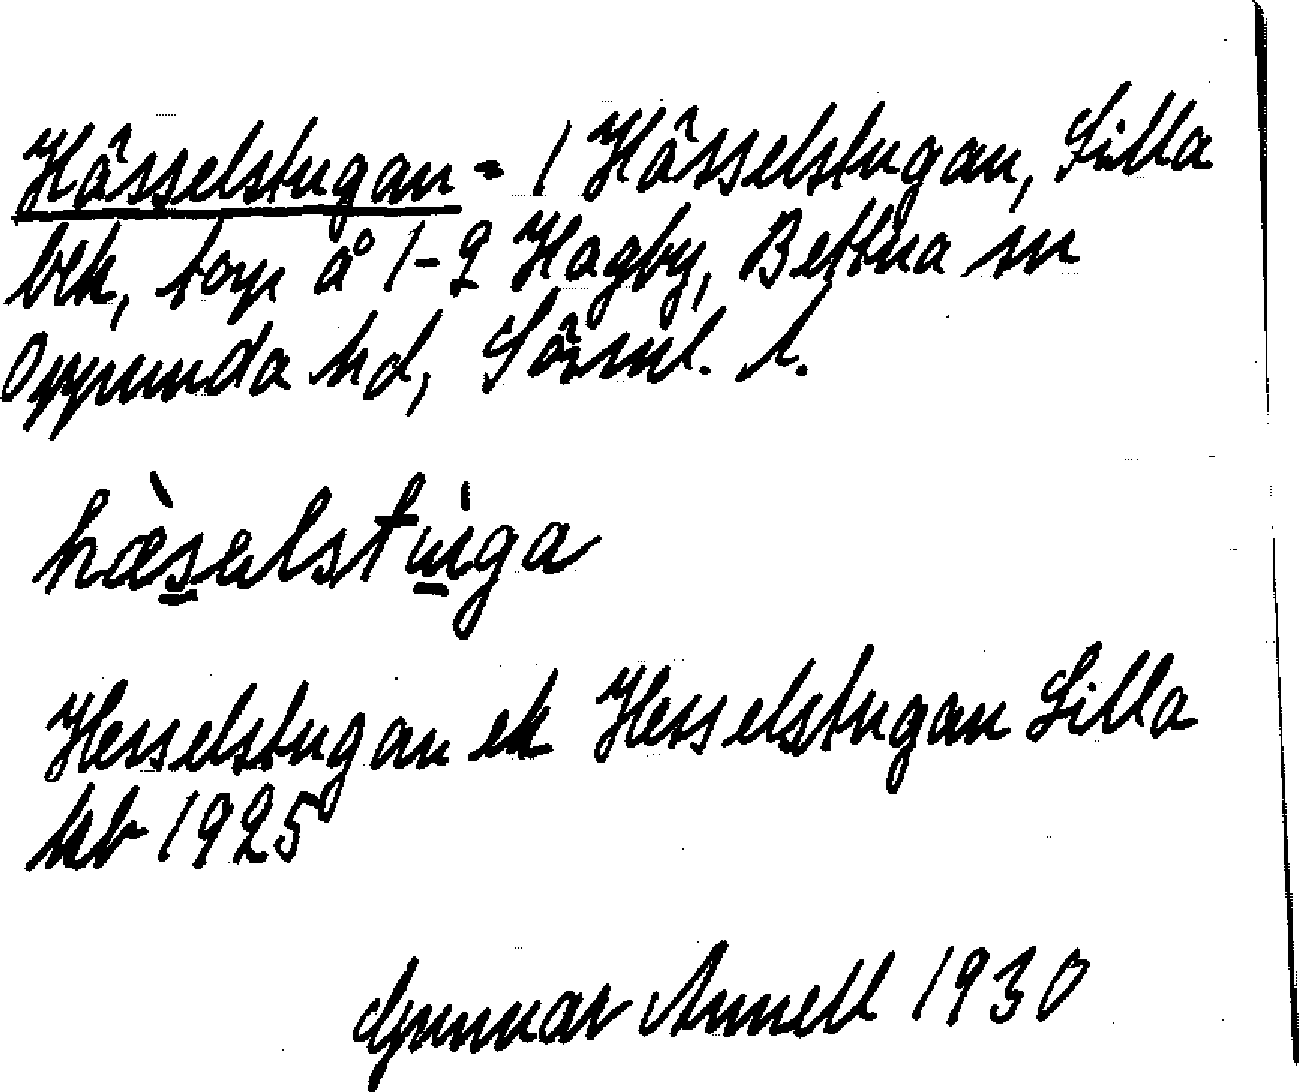 Hässelstugan - 1 Hässelstugan, Lilla
bek, torp å 1-2 Hagby, Bettna sn
Oppunda hd, Sörml. l.
hæ̀selstuga
Hesselstugan ek Hesselstugan Lilla
kb 1925
Gunnar Annell 1930